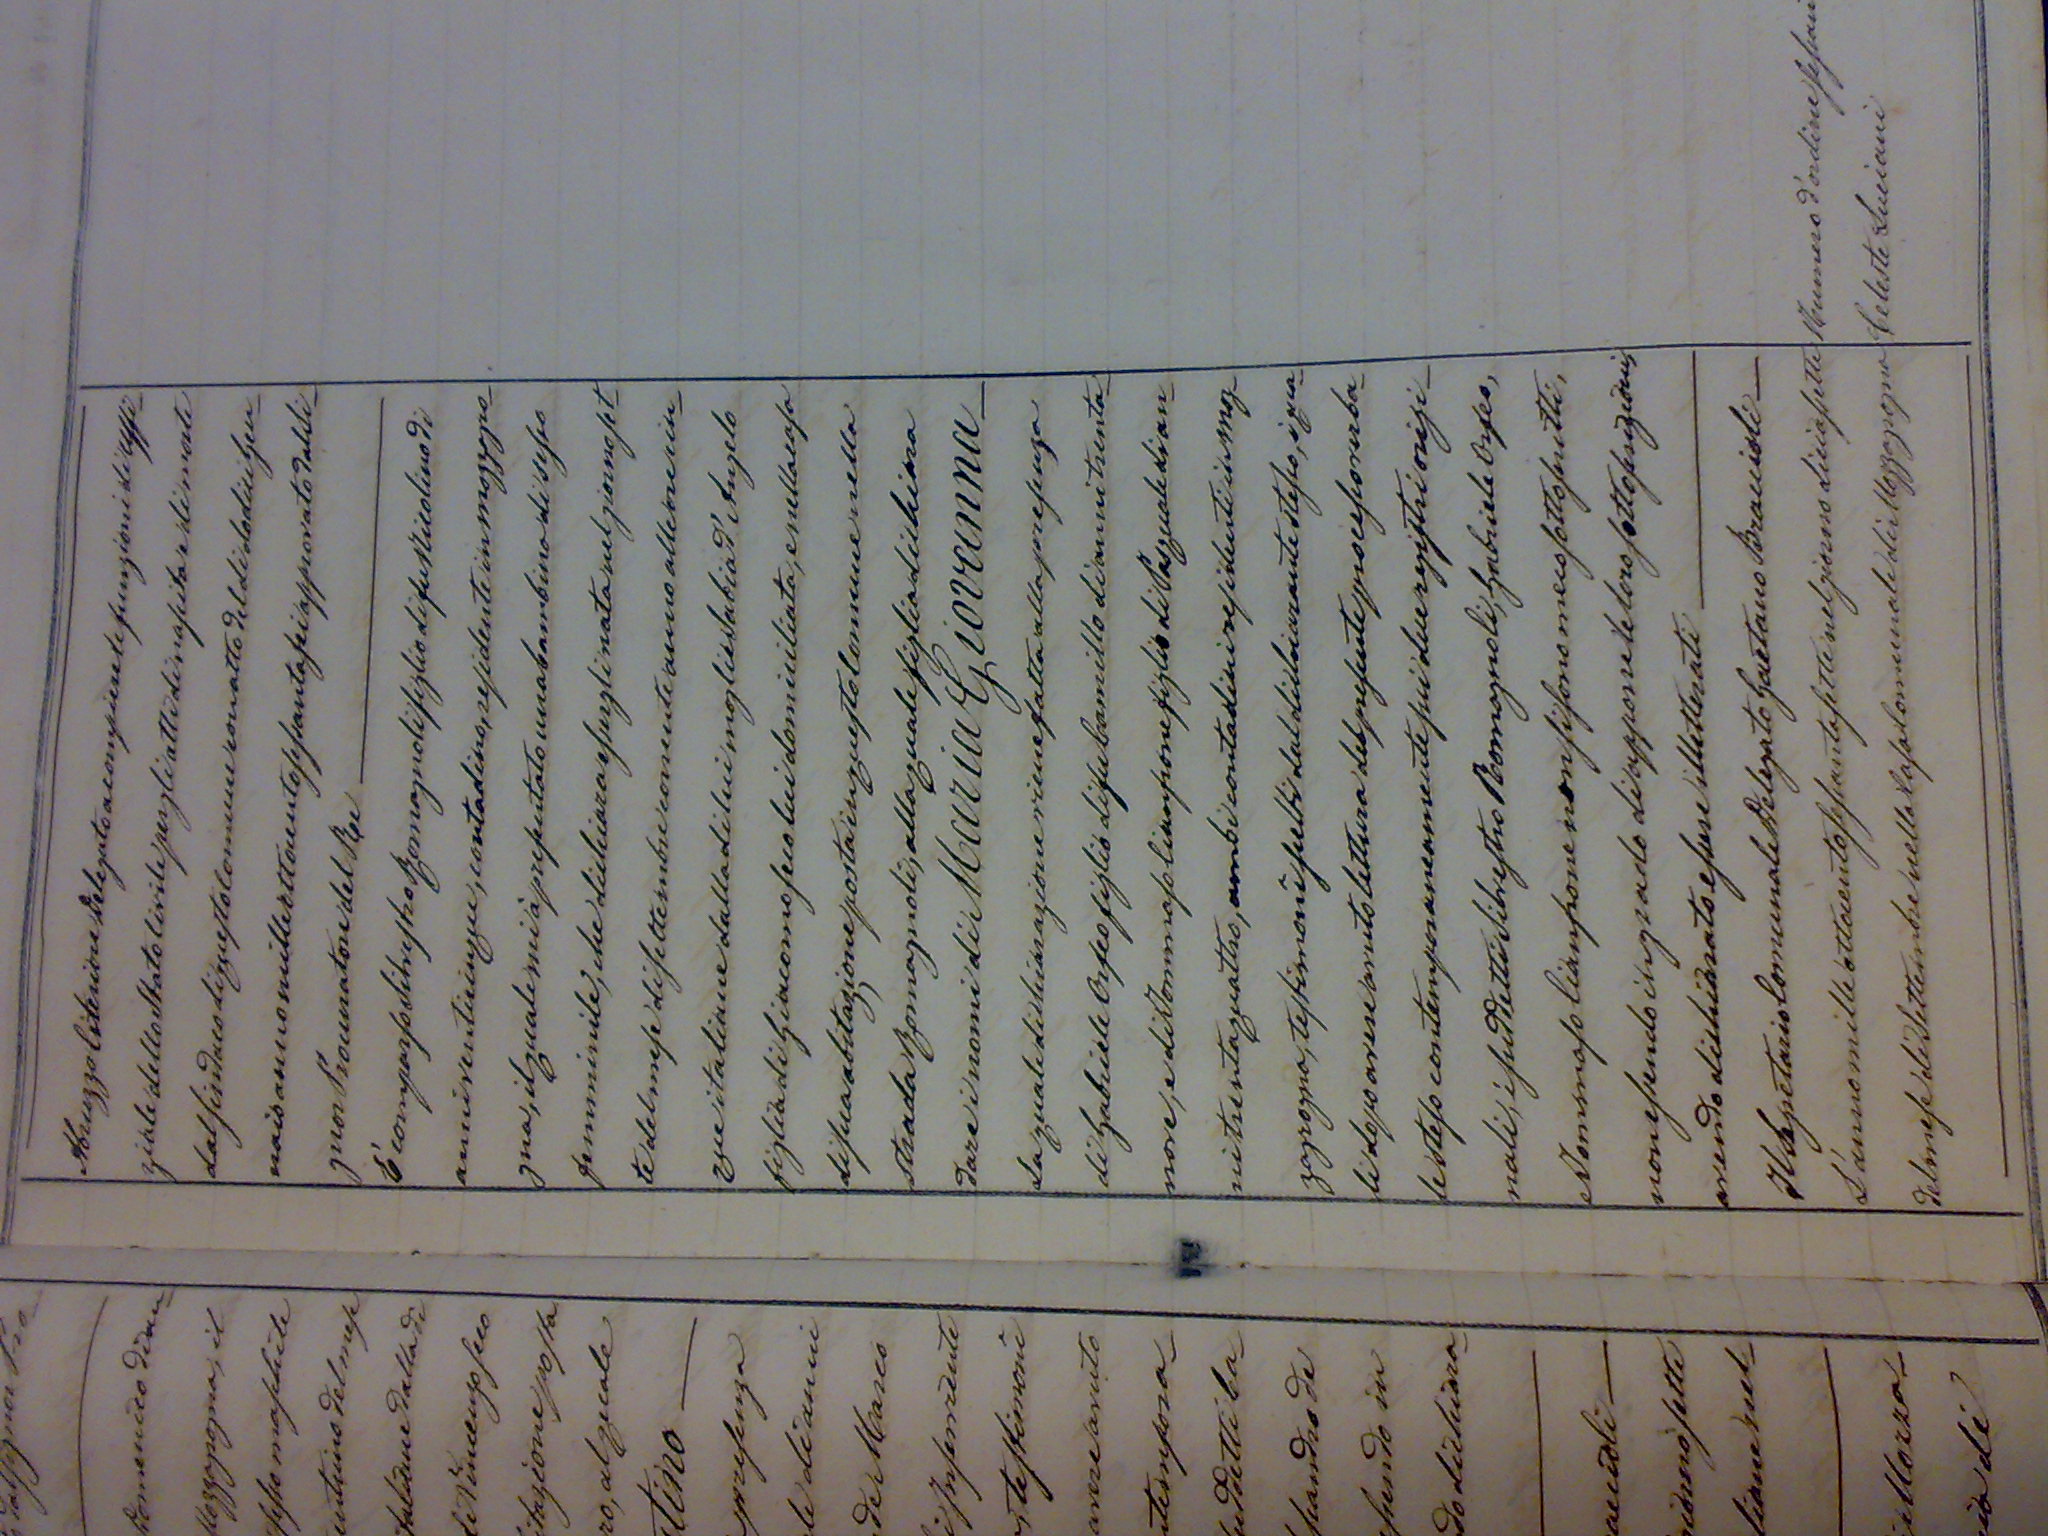 dal Signor Pro_
Domenico di an_
Mozzagrogna, il
sesso maschile
del mese
italiane dalla di
di Vincenzo seco
itazione posta
ro, al quale
tino
presenza
le di anni
de Marco
i Inserviente
, testimonî
avere avuto
ntempora_
suddetti Ga_
ssandro de
ssendo in
do dichiara_
Braccioli
giorno sette
liane nel_
i Mozza_
ia di
Abruzzo Citeriore Delegato a compiere le funzioni di Uffi_
ziale dello Stato Civile per gli atti di nascita e di morte
dal Sindaco di questo Comune con atto del dì dodici Gen_
naio anno mille ottocento sessantasei approvato dal Si_
gnor Procuratore del Re
E' comparso Silvestro Romagnoli figlio di fu Nicolino di
anni venticinque, contadino, residente in Mozzagro_
gna, il quale mi à presentato una bambina di sesso
femminile, che dichiara essergli nata nel giorno set_
te del mese di settembre corrente anno alle ore cin_
que italiane dalla di lui moglie Sabia d'Angelo
figlia di Giacomo seco lui domiciliata, e nella casa
di sua abitazione posta in questo Comune nella
strada Romagnoli, alla quale figlia dichiara
dare i nomi di Maria Giovanna_
La quale dichiarazione viene fatta alla presenza
di Gabriele Orfeo figlio di fu Camillo di anni trenta_
nove, e di Tommaso Cianfrone figlio di Pasquale di an_
ni trentaquattro, ambi contadini residenti in Moz_
zagrogna, testimonî scelti dal dichiarante stesso, i qua_
li dopo avere avuto lettura del presente processo verba_
le steso contemporaneamente sui due registri origi_
nali, i suddetti Silvestro Romagnoli, Gabriele Orfeo,
e Tommaso Cianfrone non si sono meco sottoscritti,
non essendo in grado di apporre le loro sottoscrizioni,
avendo dichiarato essere illetterati
Il Segretario Comunale Delegato Gaetano Braccioli_
L'anno mille ottocento sessantasette nel giorno diciassette
del mese di Settembre nella Casa Comunale di Mozzagrogna
Numero d'ordine sessan
Celeste Luciani